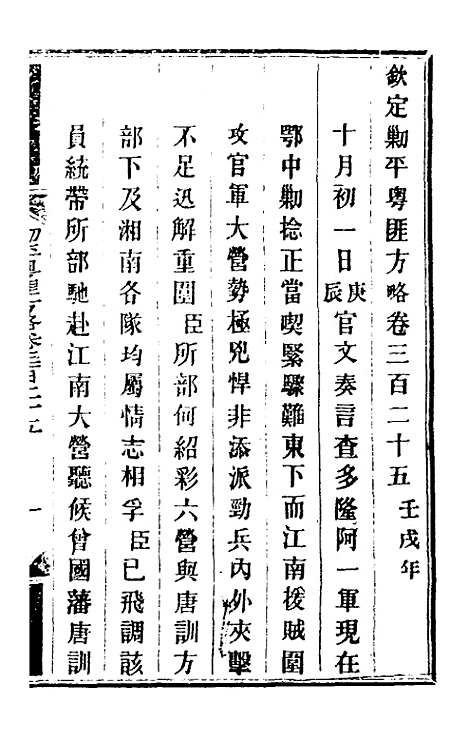 欽定勦平粵匪方略卷三百二十五 壬戌年
十月初一日庚辰官文奏言查多隆阿一軍現在
鄂中勦捻正當喫緊驟難東下而江南援賊圍
攻官軍大營勢極兇悍非添派勁兵內外夾擊
不足迅解重圍臣所部何紹彩六營與唐訓方
部下及湘南各隊均屬情志相孚臣已飛調該
員統帶所部馳赴江南大營聽候曾國藩唐訓
一